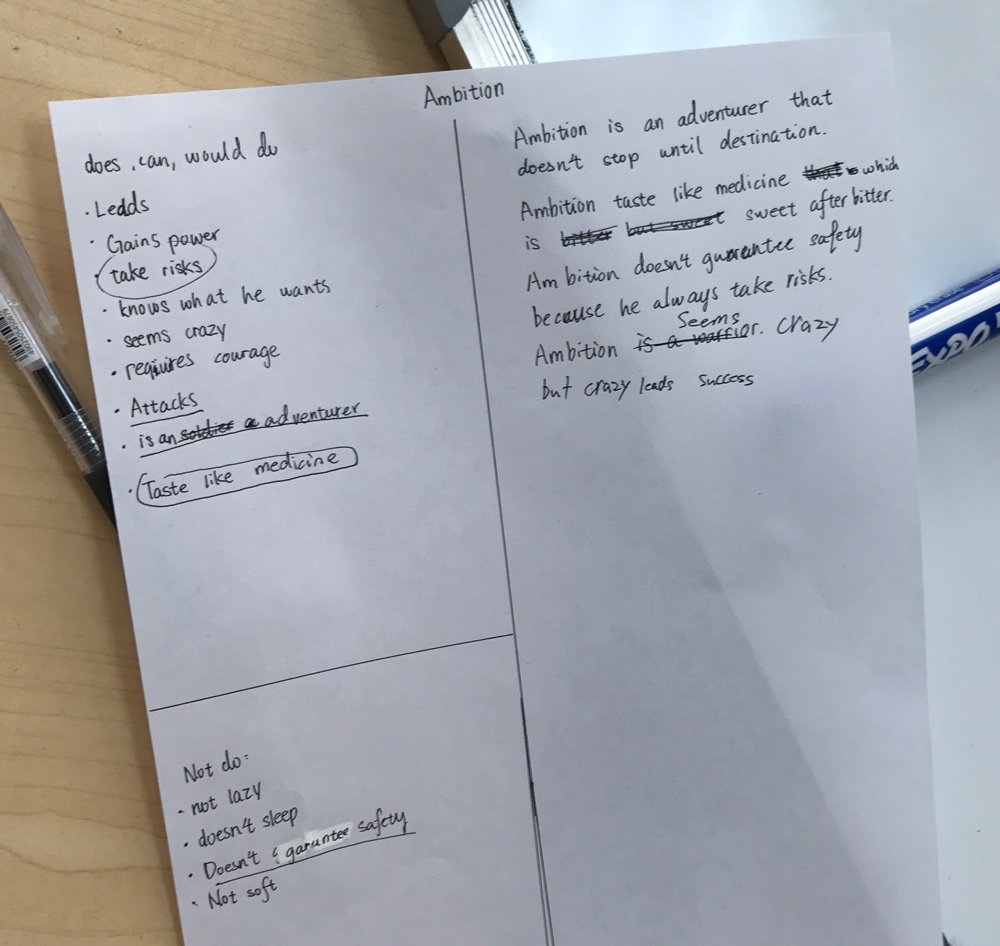 Ambition
does, can, would do
· Leads
· Gains power
· take risks
· knows what he wants
· seems crazy
· requires courage
· Attacks
· is an soldier a adventurer
· Taste like medicine
Not do:
· not lazy
· doesn't sleep
· Doesn't garuntee safety
· Not soft
Ambition is an adventurer that
doesn't stop until destination.
Ambition taste like medicine that which
is bitter but sweet sweet after bitter.
Ambition doesn't guarantee safety
because he always take risks.
Seems
Ambition is a warrior. crazy
but crazy leads success
EXPO